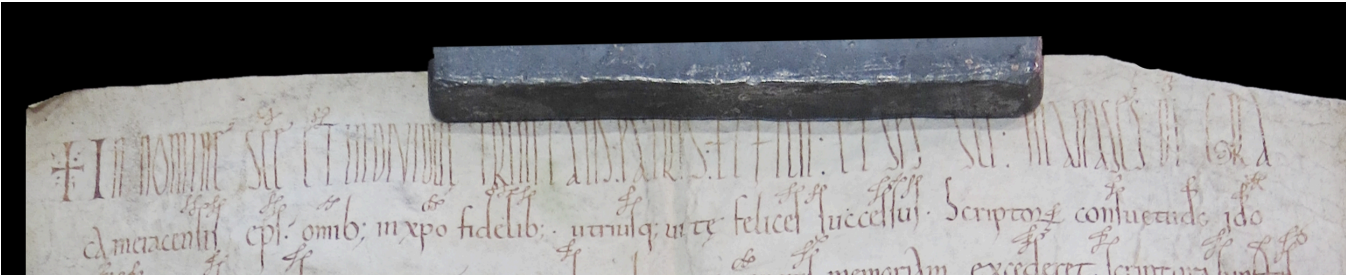 + In nomine sce et individue trinitatis. patris. et filii. et sps sci. manasses di gra
cameracensis eps. omib; in xpo fidelib;. utriusq; uite felices successus. Scriptorꝝ consuetudo ido
memoriam excederet